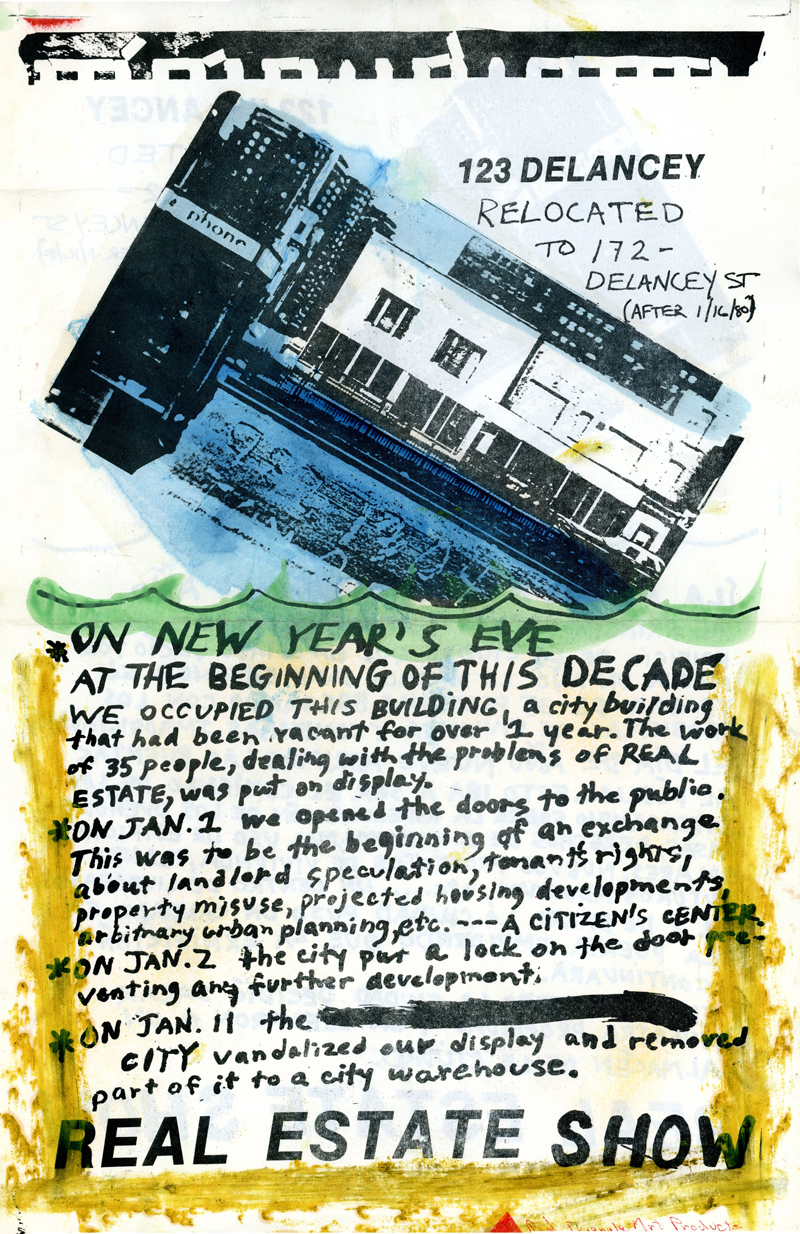 phone
123 DELANCEY
RELOCATED
TO 172-
DELANCEY ST
(AFTER 1/16/80)
* ON NEW YEAR'S EVE
AT THE BEGINNING OF THIS DECADE
WE OCCUPIED THIS BUILDING, a city building
that had been vacant for over 1 year. The work
of 35 people, dealing with the problems of REAL
ESTATE, was put on display.
* ON JAN. 1 we opened the doors to the public.
This was to be the beginning of an exchange
about landlord speculation, tenants rights,
property misuse, projected housing developments,
arbitrary urban planning, etc. --- A CITIZEN'S CENTER.
* ON JAN. 2 the city put a lock on the door pre-
venting any further development.
* ON JAN. 11 the
CITY vandalized our display and removed
part of it to a city warehouse.
REAL ESTATE SHOW